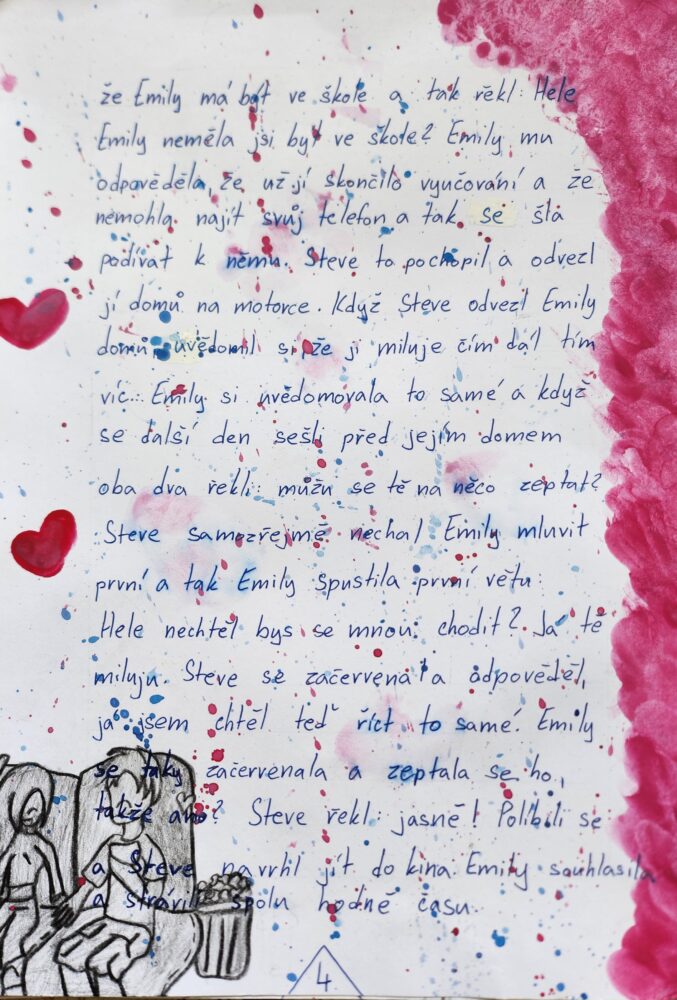 že Emily má být ve škole a tak řekl: Hele
Emily neměla jsi být ve škole? Emily mu
odpověděla, že už jí skončilo vyučování a že
nemohla najít svůj telefon a tak se šla
podívat k němu. Steve to pochopil a odvezl
jí domů na motorce. Když Steve odvezl Emily
domů, uvědomil si, že ji miluje čím dál tím
víc. Emily si uvědomovala to samé a když
se další den sešli před jejím domem
oba dva řekli: můžu se tě na něco zeptat?
Steve samozřejmě nechal Emily mluvit
první a tak Emily spustila první větu:
Hele nechtěl bys se mnou chodit? Já tě
miluju. Steve se začervenal a odpověděl,
ja jsem chtěl teď říct to samé. Emily
se taky začervenala a zeptala se ho,
takže ano? Steve řekl: jasně! Políbili se
a Steve navrhl jít do kina. Emily souhlasila
a strávili spolu hodně času.
4